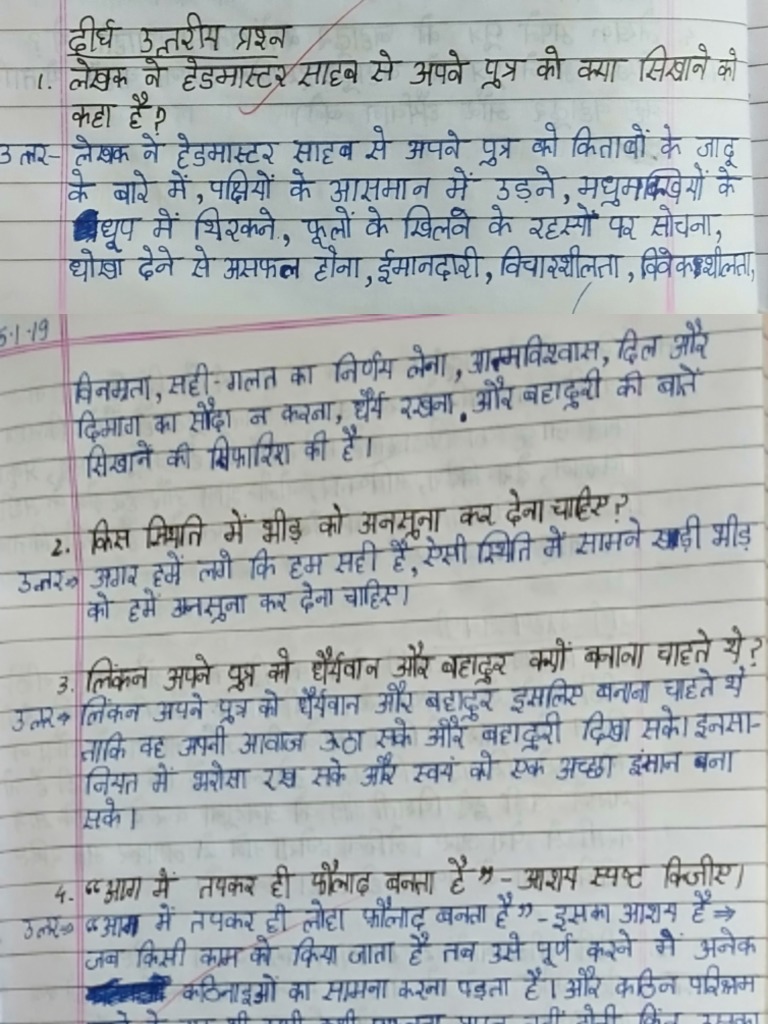 दीर्घ उत्तरीय प्रश्न
1. लेखक ने हेडमास्टर साहब से अपने पुत्र को क्या सिखाने को
कहा है?
उत्तर- लेखक ने हेडमास्टर साहब से अपने पुत्र को किताबों के जादू
के बारे में, पक्षियों के आसमान में उड़ने, मधुमक्खियों के
धूप में थिरकने, फूलों के खिलने के रहस्यों पर सोचना,
धोखा देने से असफल होना, ईमानदारी, विचारशीलता, विवेकशीलता,
5-1-19
विनम्रता, सही-गलत का निर्णय लेना, आत्मविश्वास, दिल और
दिमाग का सौदा न करना, धैर्य रखना, और बहादुरी की बातें
सिखाने की सिफारिश की है।
2. किस स्थिति में भीड़ को अनसुना कर देना चाहिए?
उत्तर⇒ अगर हमें लगे कि हम सही हैं, ऐसी स्थिति में सामने खड़ी भीड़
को हमें अनसुना कर देना चाहिए।
3. लिंकन अपने पुत्र को धैर्यवान और बहादुर क्यों बनाना चाहते थे?
उत्तर⇒ लिंकन अपने पुत्र को धैर्यवान और बहादुर इसलिए बनाना चाहते थे
ताकि वह अपनी आवाज उठा सके और बहादुरी दिखा सके। इनसा-
नियत में भरोसा रख सके और स्वयं को एक अच्छा इंसान बना
सके।
4. "आग में तपकर ही फौलाद बनता है" - आशय स्पष्ट किजीए।
उत्तर⇒ "आग में तपकर ही लोहा फौलाद बनता है" - इसका आशय है ⇒
जब किसी काम को किया जाता है तब उसे पूर्ण करने में अनेक
कठिनाइओं का सामना करना पड़ता है। और कठिन परिश्रम